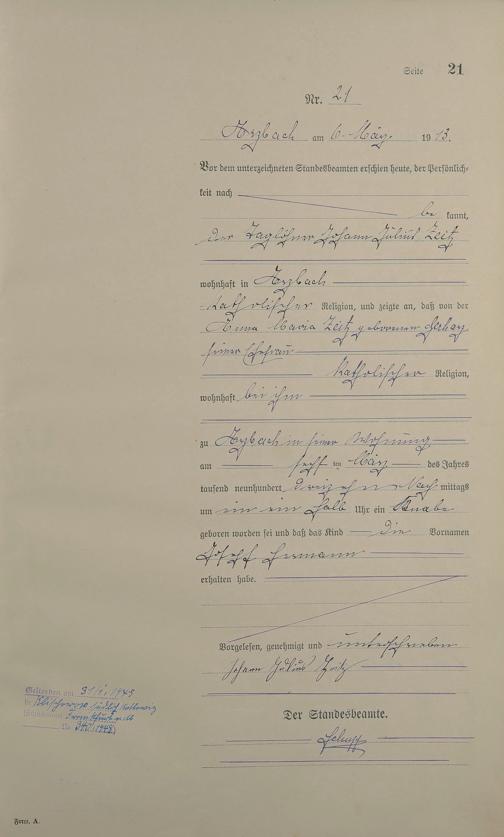 Seite 21
Nr. 21
Arzbach am 6. März 1913.
Vor dem unterzeichneten Standesbeamten erschien heute, der Persönlich-
keit nach
be kannt,
der Taglöhner Johann Julius Zeitz
wohnhaft in Arzbach
katholischer Religion, und zeigte an, daß von der
Anna Maria Zeitz geborenen
seiner Ehefrau
katholischer Religion,
wohnhaft bei ihm
zu Arzbach in seiner Wohnung
am sechs ten März des Jahres
tausend neunhundert dreizehn Nach mittags
um ein ein halb Uhr ein Knabe
geboren worden sei und daß das Kind die Vornamen
Josef Hermann
erhalten habe.
Vorgelesen, genehmigt und unterschrieben
Johann Julius Zeitz
Der Standesbeamte.
Gestorben am 1945
in südlich
Standesamt
Nr.
Form. A.